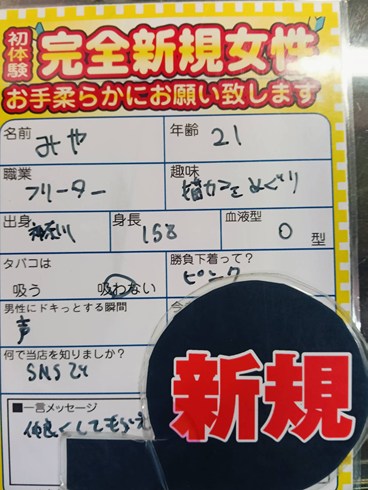 初体験
完全新規女性
お手柔らかにお願い致します
名前 みや 年齢 21
職業 フリーター 趣味 猫カフェめぐり
出身 神奈川 身長 158 血液型 O 型
タバコは 吸う 吸わない
勝負下着って? ピンク
男性にドキっとする瞬間 声
何で当店を知りましたか?
SNSで
■一言メッセージ
仲良くしてもらえ
新規